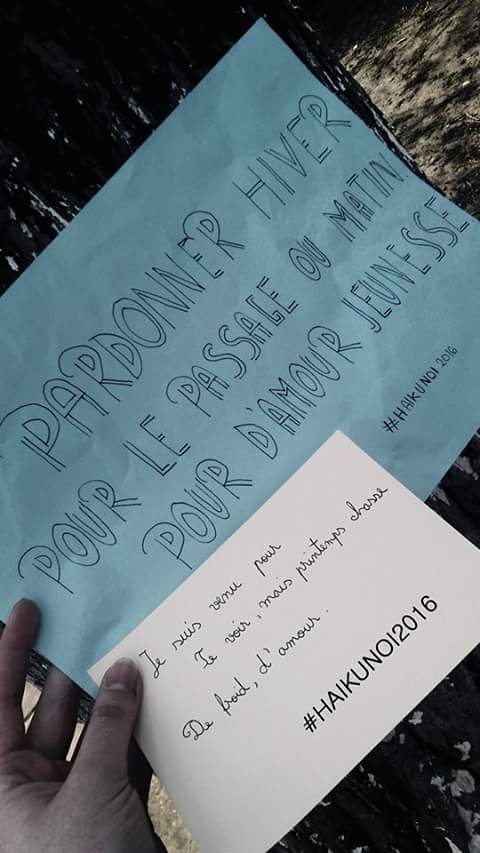 PARDONNER HIVER
POUR LE PASSAGE OU MATIN
POUR D'AMOUR JEUNESSE
#HAIKUNOI 2016
Je suis venu pour
Te voir, mais printemps chasse
De froid, d'amour.
#HAIKUNOI2016